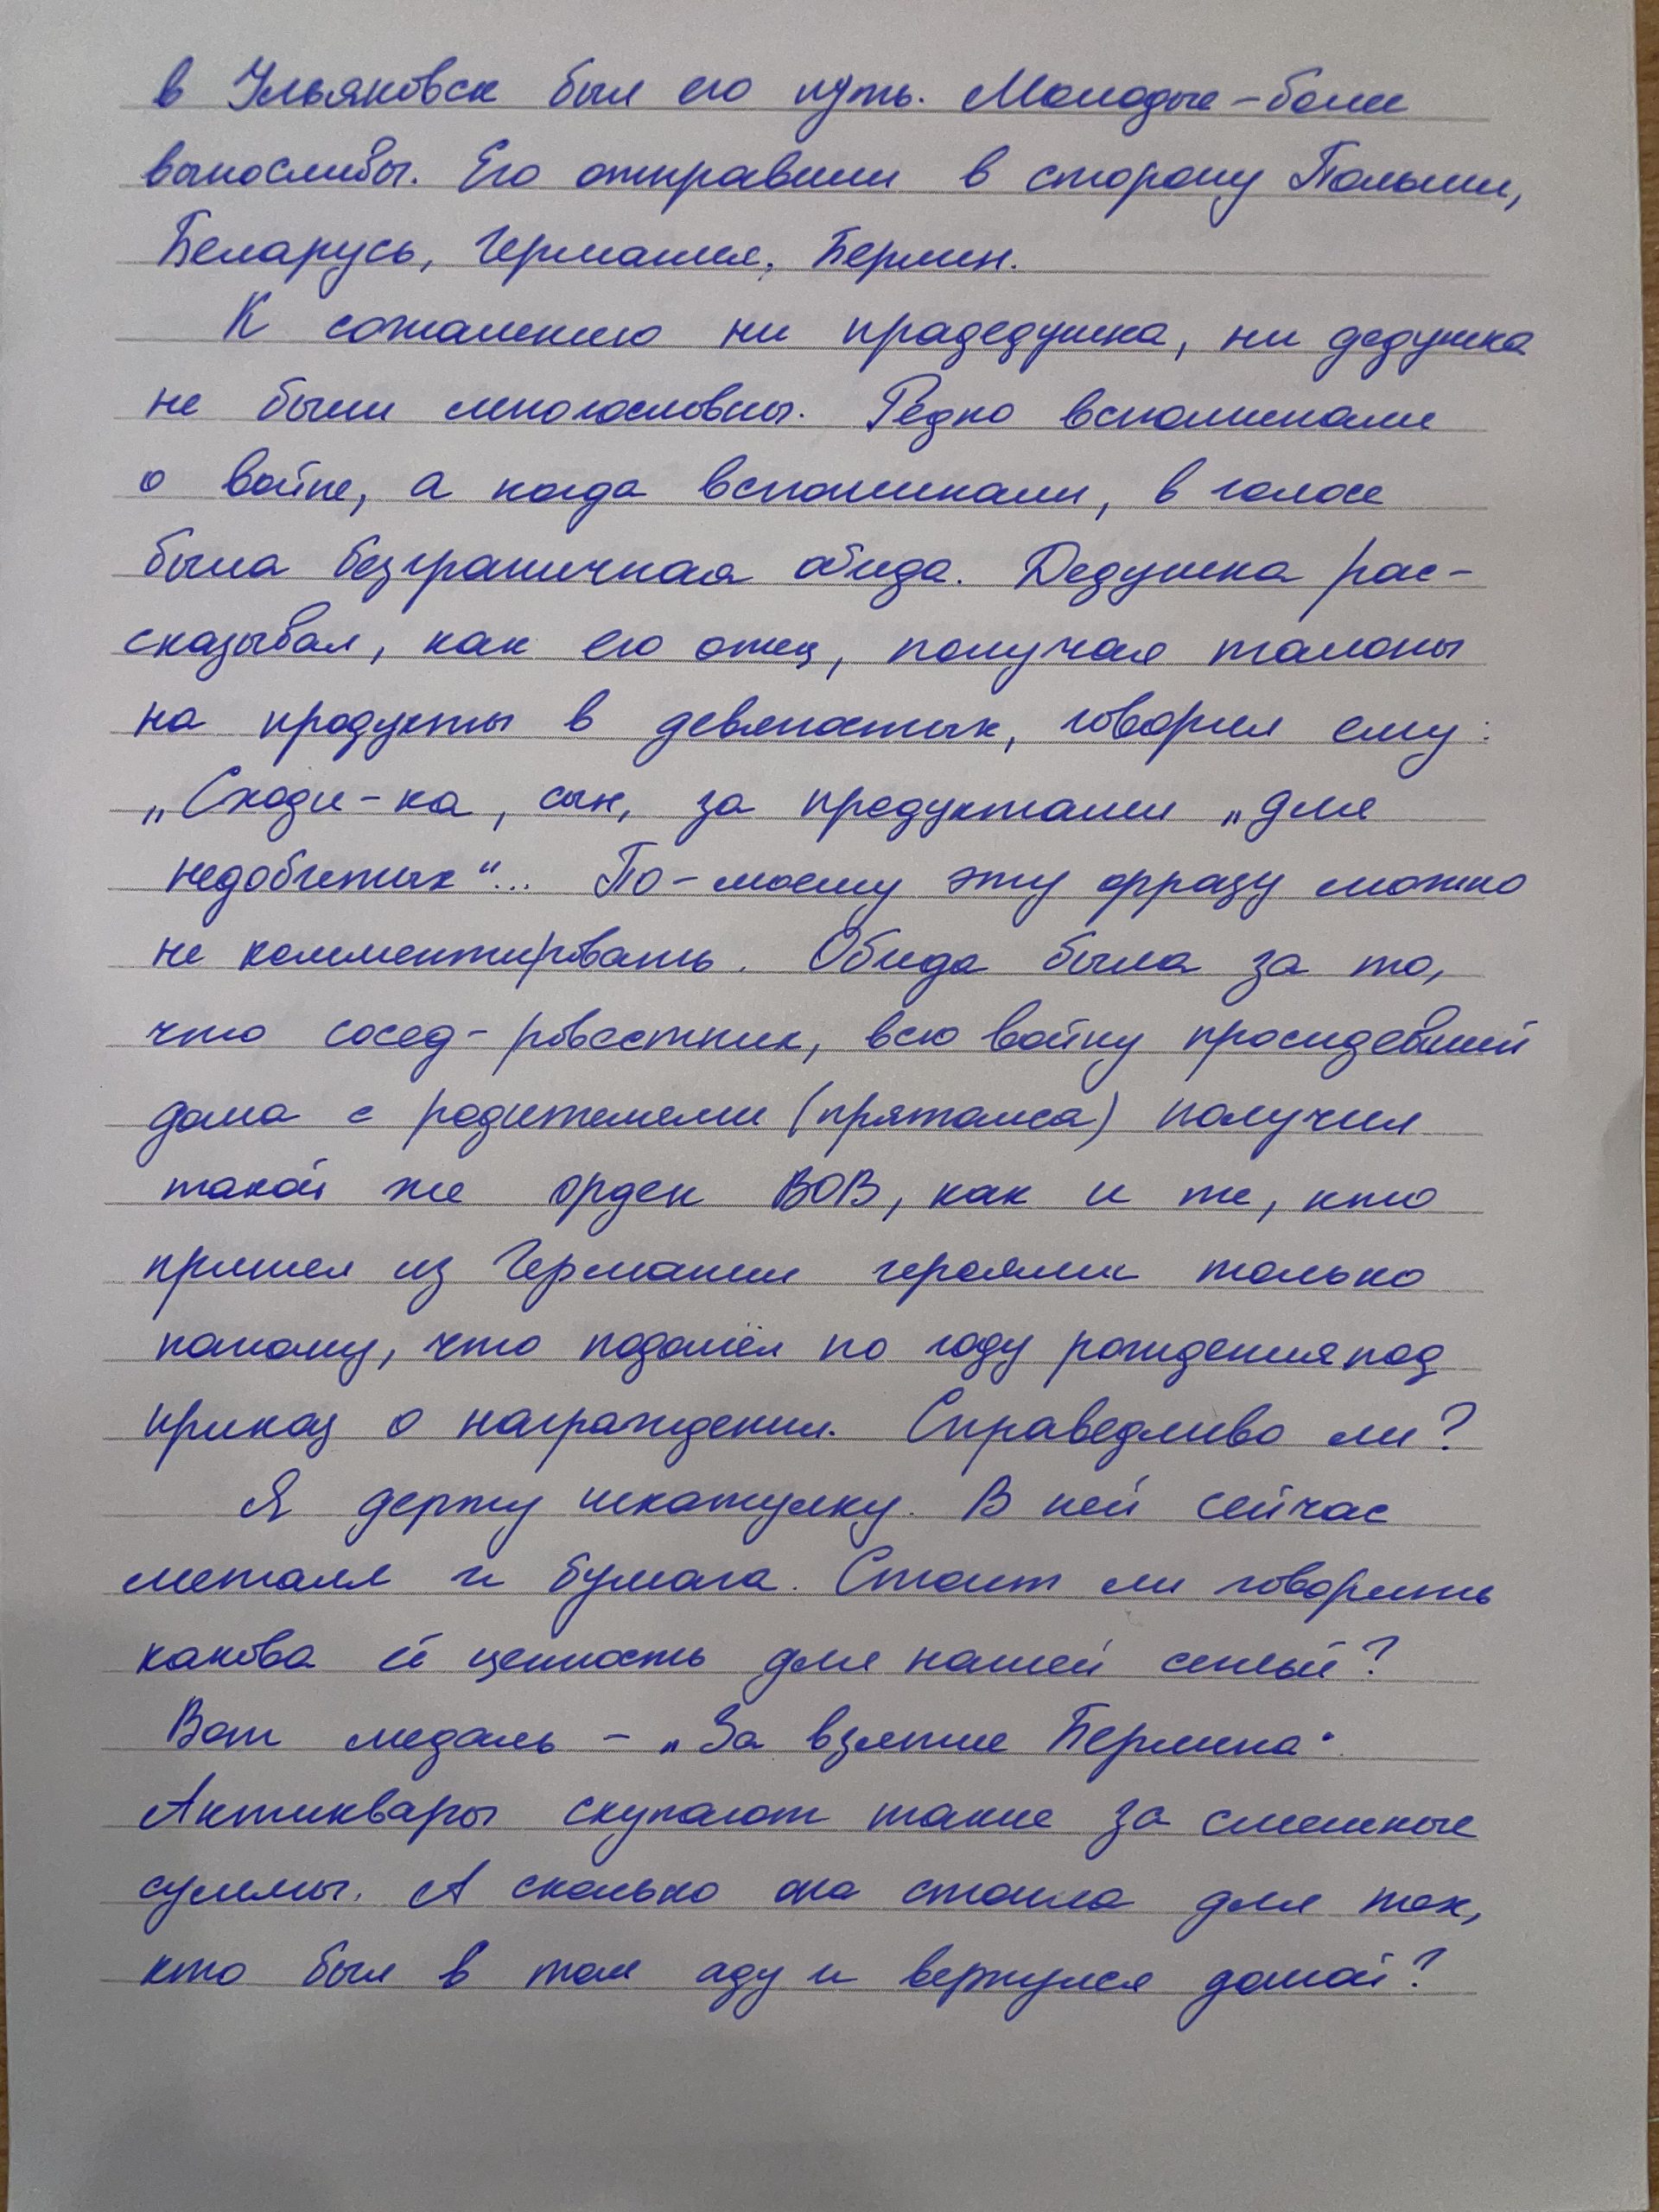 в Ульяновск был его путь. Молодые – более
выносливы. Его отправили в сторону Польши,
Беларусь, Германия, Берлин.
К сожалению ни прадедушка, ни дедушка
не были многословны. Редко вспоминали
о войне, а когда вспоминали, в голосе
была безграничная обида. Дедушка рас-
сказывал, как его отец, получая талоны
на продукты в девяностых, говорил ему:
„Сходи-ка, сын, за продуктами „для
недобитых“... По-моему эту фразу можно
не комментировать. Обида была за то,
что сосед-ровестник, всю войну просидевший
дома с родителями (прятался) получил
такой же орден ВОВ, как и те, кто
пришел из Германии героями только
потому, что подошёл по году рождения под
приказ о награждении. Справедливо ли?
Я держу шкатулку. В ней сейчас
металл и бумага. Стоит ли говорить
какова её ценность для нашей семьи?
Вот медаль – „За взятие Берлина".
Антиквары скупают такие за смешные
суммы. А сколько она стоила для тех,
кто был в том аду и вернулся домой?